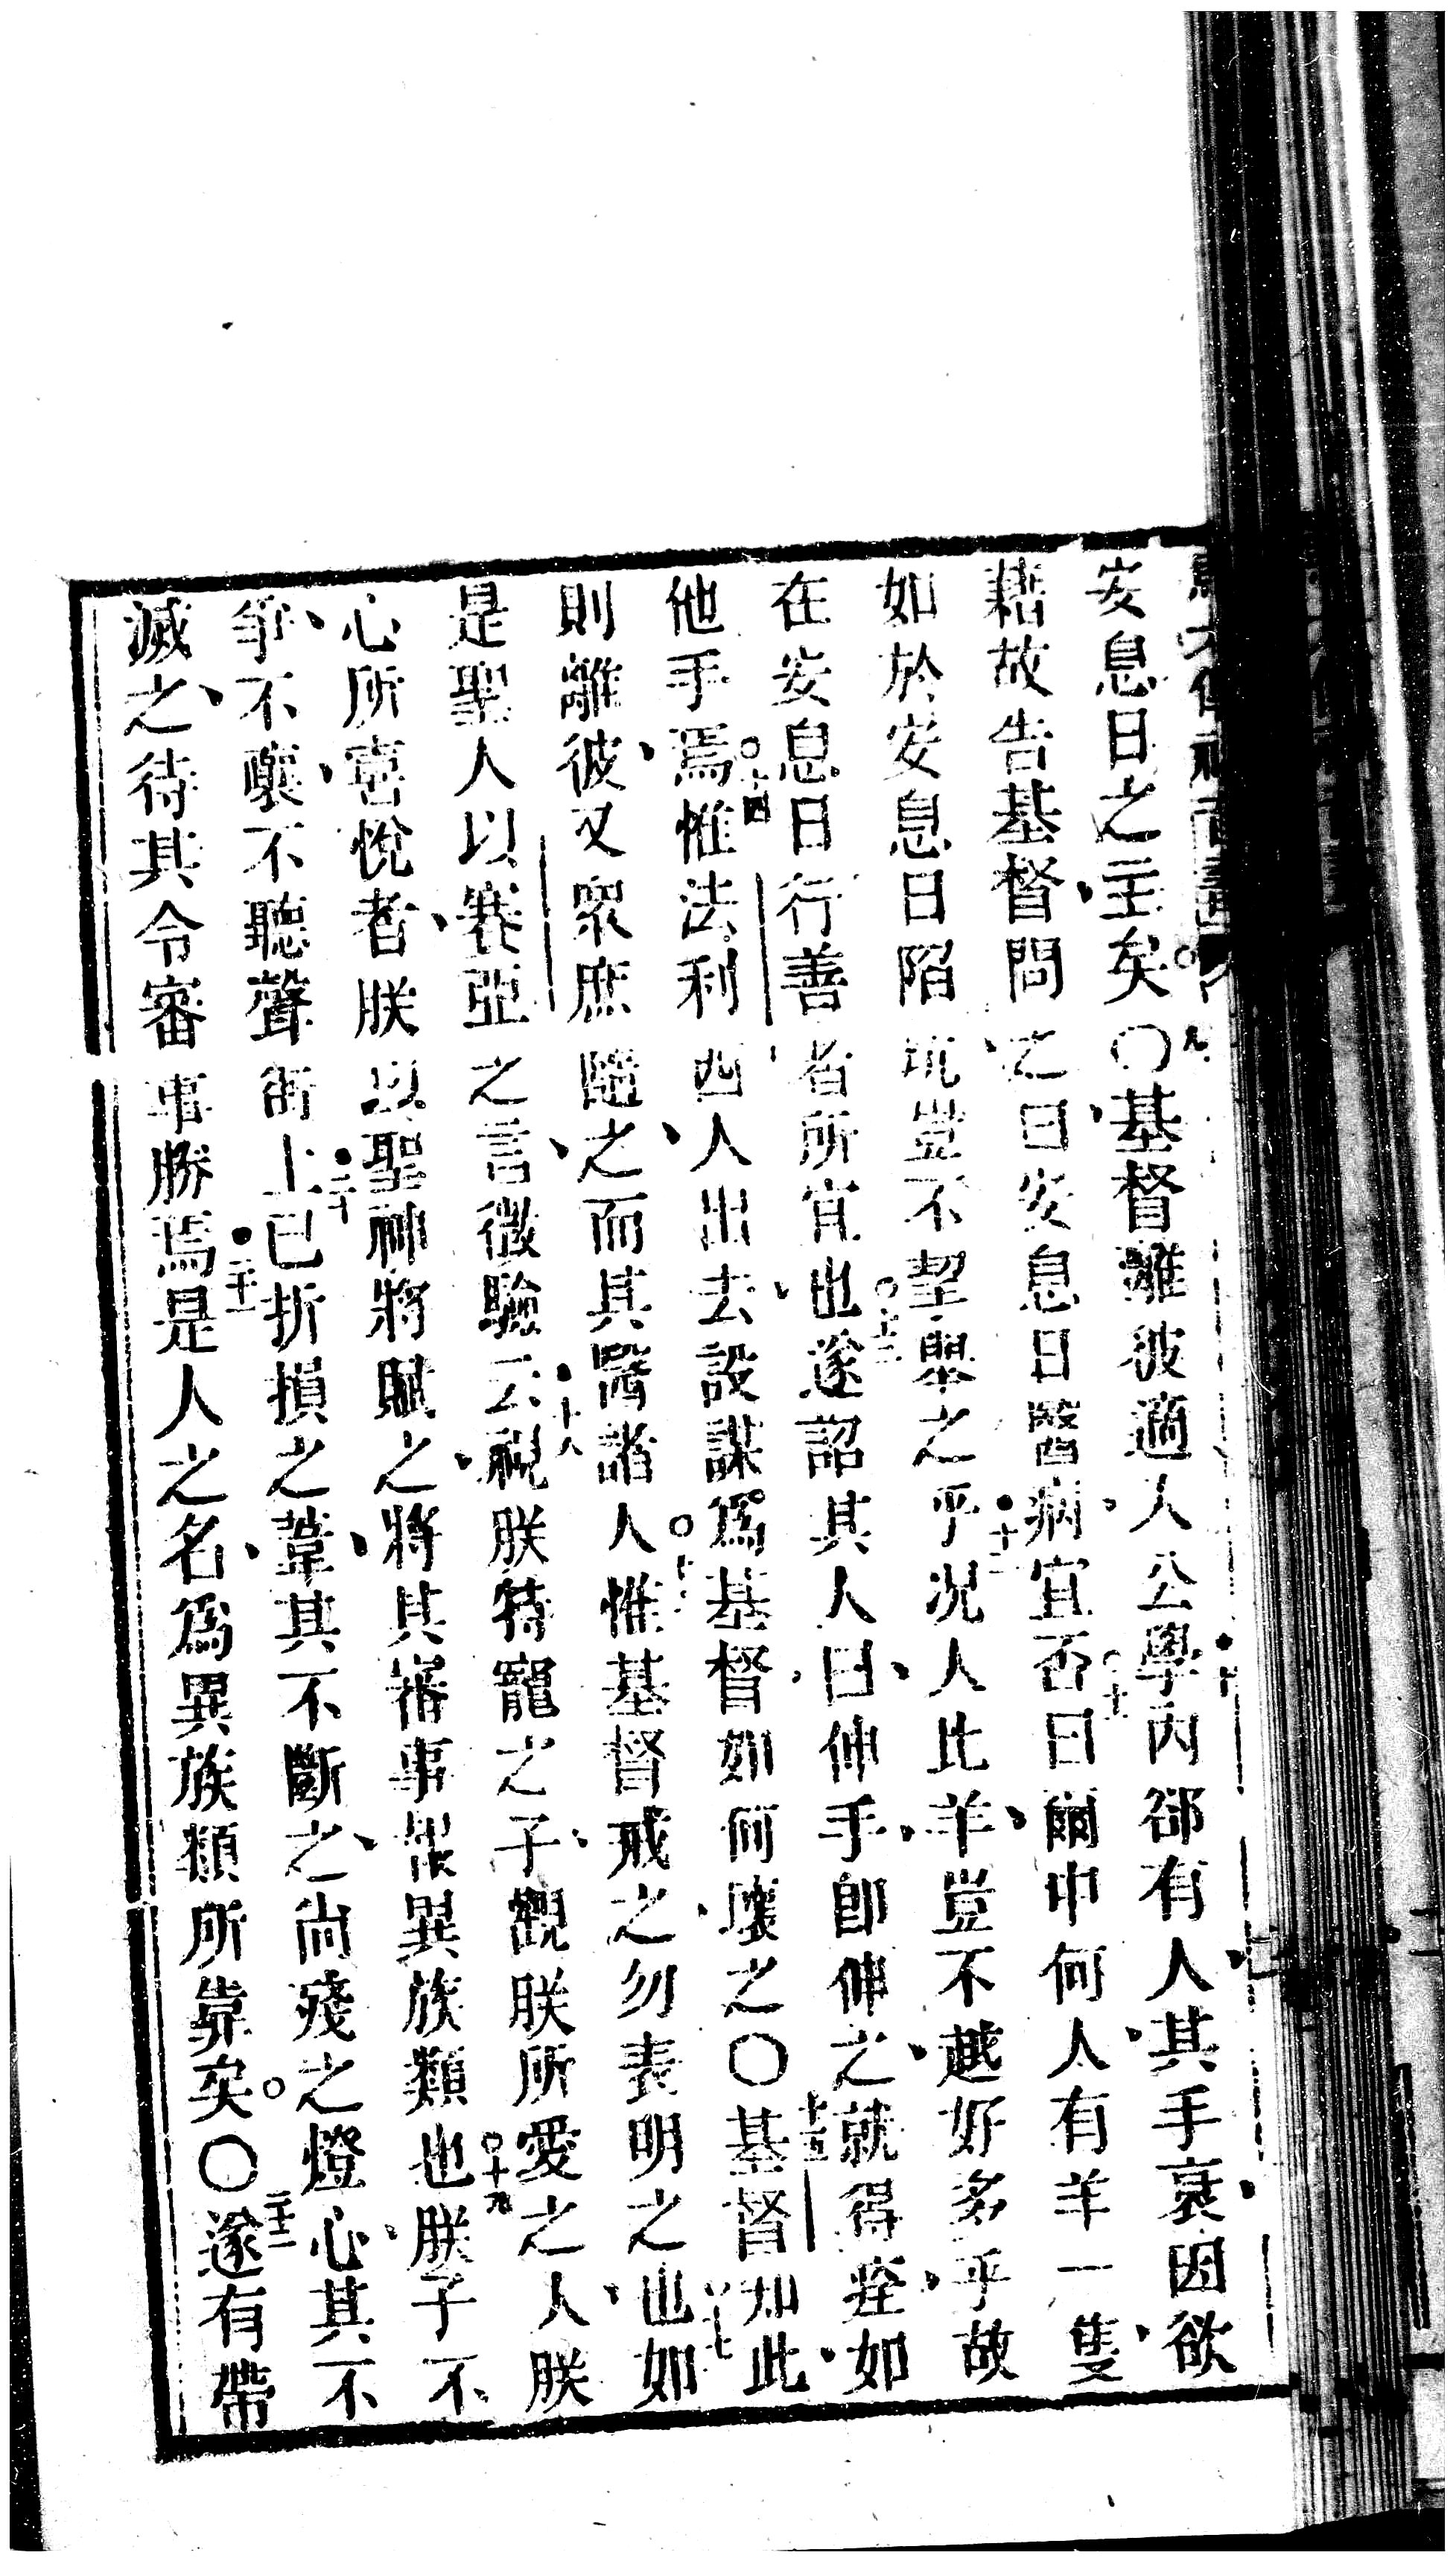 安息日之主矣○九○基督離彼適人公學內十郤有人其手衰因欲
藉故告基督問之曰安息日醫病宜否十一曰爾中何人有羊一隻
如於安息日陷坑豈不望舉之乎十二況人比羊豈不越好多乎故
在安息日行善者所宜也十三遂詔其人曰伸手卽伸之就得痊如
他手焉十四惟法利西人出去設謀爲基督如何壞之○十五基督知此
則離彼又衆庶隨之而其醫諸人惟基督戒之勿表明之也十七如
是聖人以賽亞之言徵驗云十八視朕特寵之子觀朕所愛之人朕
心所喜悅者朕以聖神將賦之將其審事報異族類也十九朕子不
爭不嚷不聽聲街上二十已折損之葦其不斷之尚殘之燈心其不
滅之待其令審事勝焉二十一是人之名爲異族類所靠矣○二十二遂有帶